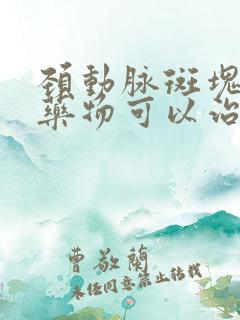 頚動脉斑塊
藥物可以治
曹敬蘭
未經同意禁止轉載